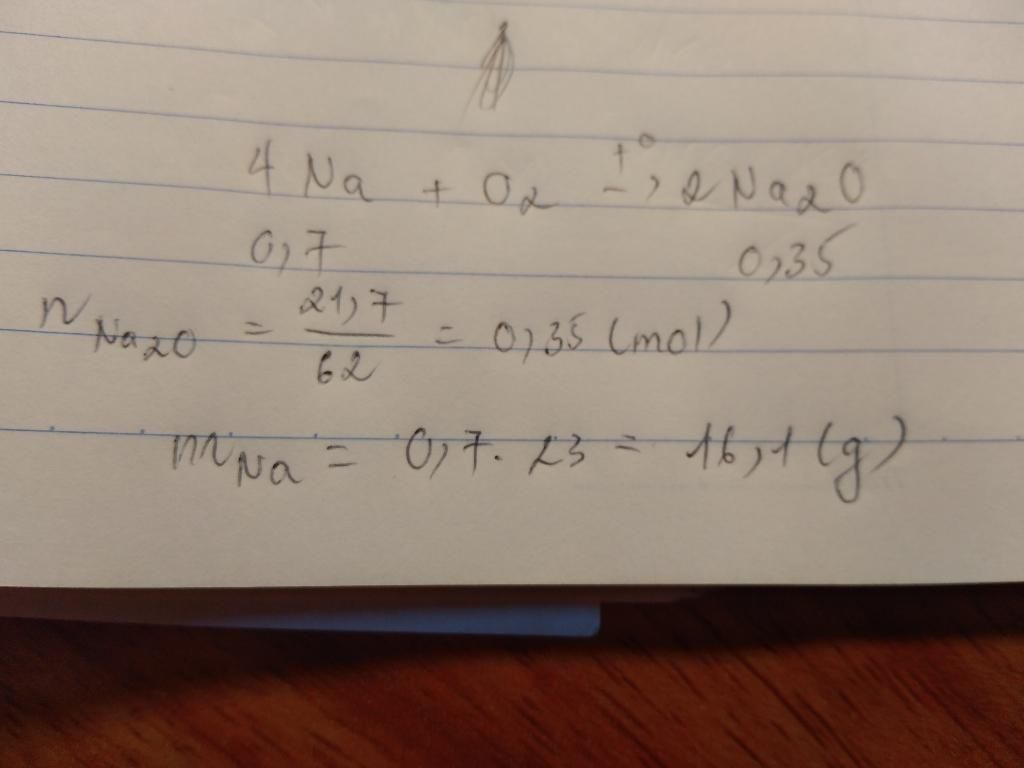 4 Na + O2 t°→ 2 Na2O
0,7 0,35
nNa2O = 21,7/62 = 0,35 (mol)
mNa = 0,7. 23 = 16,1 (g)